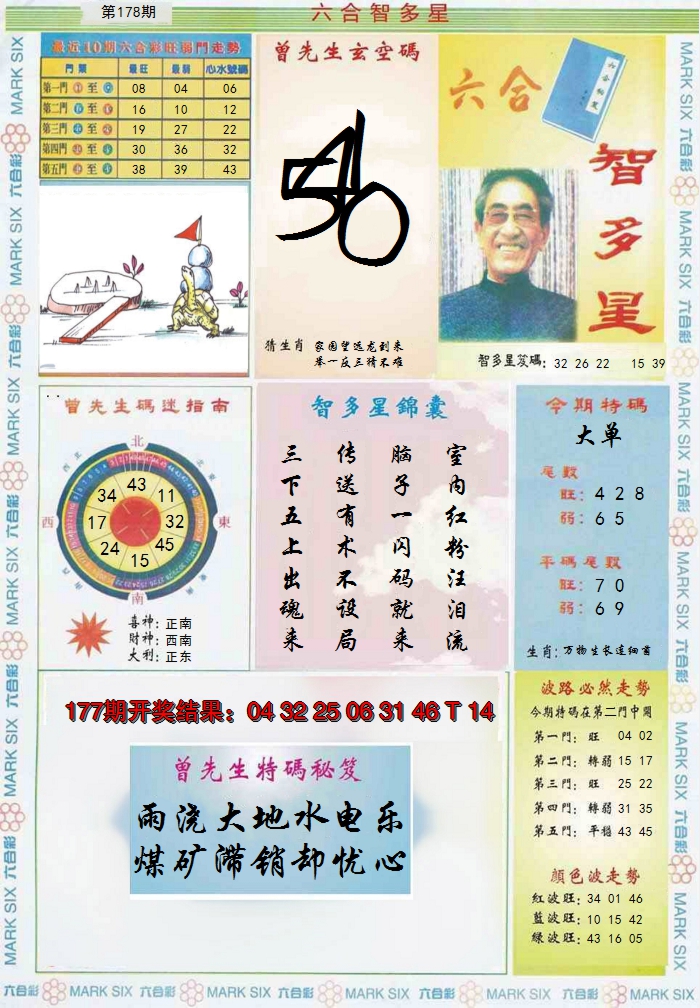 第178期
六合智多星
最近10期六合彩旺弱門走勢
門類 最旺 最弱 心水號碼
第一門 至 08 04 06
第二門 至 16 10 12
第三門 至 19 27 22
第四門 至 30 36 32
第五門 至 38 39 43
曾先生玄空碼
猜生肖 家园望远龙到来
举一反三猜不难
六合
智多星
智多星笈碼: 32 26 22 15 39
曾先生碼迷指南
北
西
東
南
43
34 11
17 32
24 45
15
喜神: 正南
財神: 西南
大利: 正东
智多星錦囊
室内红粉汪泪流
脑子一闪码就来
传送有术不设局
三下五上出魂来
今期特碼
大单
尾數
旺: 4 2 8
弱: 6 5
平碼尾數
旺: 7 0
弱: 6 9
生肖: 万物生长连细菌
177期开奖结果: 04 32 25 06 31 46 T 14
曾先生特碼秘笈
雨浇大地水电乐
煤矿滞销却忧心
波路必然走勢
今期特碼在第二門中開
第一門: 旺 04 02
第二門: 轉弱 15 17
第三門: 旺 25 22
第四門: 轉弱 31 35
第五門: 平穩 43 45
顏色波走勢
紅波旺: 34 01 46
藍波旺: 10 15 42
綠波旺: 43 16 05
MARK SIX 六合彩